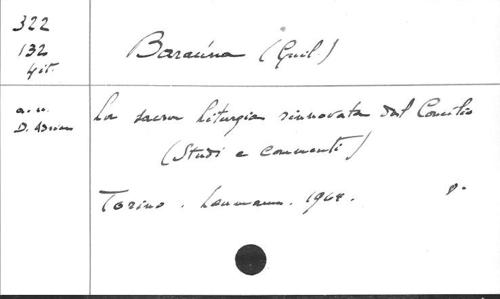 322
132
Git.
Baraúna (Guil.)
a. u.
D. Adrien
La sacra Liturgia rinnovata dal Concilio
(Studi e commenti)
Torino. Leumann. 1964.
8.